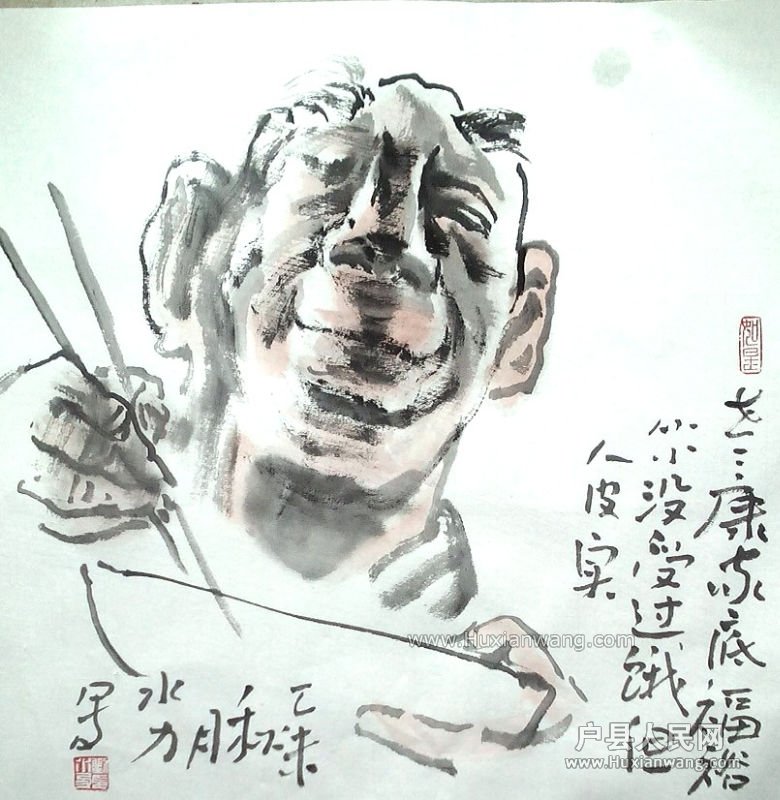 老三康家底福裕
从小没受过饿但
人皮实
乙未秋月
水力
写
如是
www.Huxianwang.com
户县人民网
www.Huxianwang.com